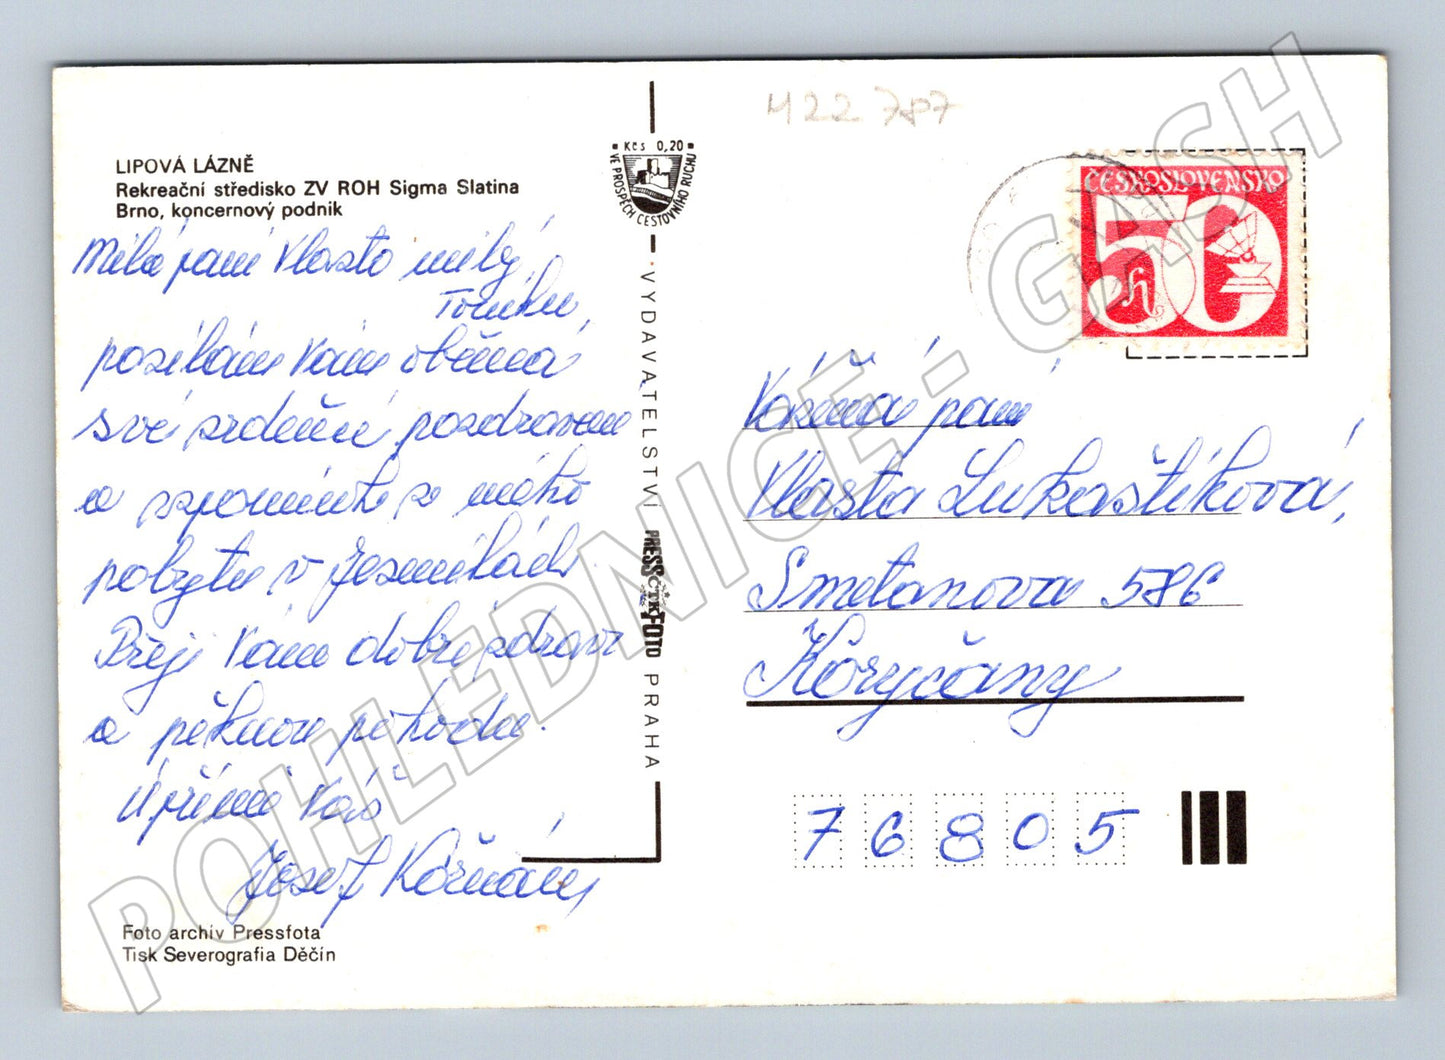 LIPOVÁ LÁZNĚ
Rekreační středisko ZV ROH Sigma Slatina
Brno, koncernový podnik
Milá paní Vlasto milý
Toníku,
posílám Vám oběma
své srdečné pozdravem
a vzpomínku z mého
pobytu v Jeseníkách
Přeji Vám dobré zdraví
a pěknou pohodu.
Upřímně Váš
Josef
Foto archiv Pressfota
Tisk Severografia Děčín
Kčs 0,20
VE PROSPĚCH CESTOVNÍHO RUCHU
VYDAVATELSTVÍ PRESSFOTO PRAHA
ČTK
422 787
ČESKOSLOVENSKO
50 h
Vážená paní
Vlasta Lukaštíková,
Smetanova 586
Koryčany
76805
POHLEDNICE - GASH